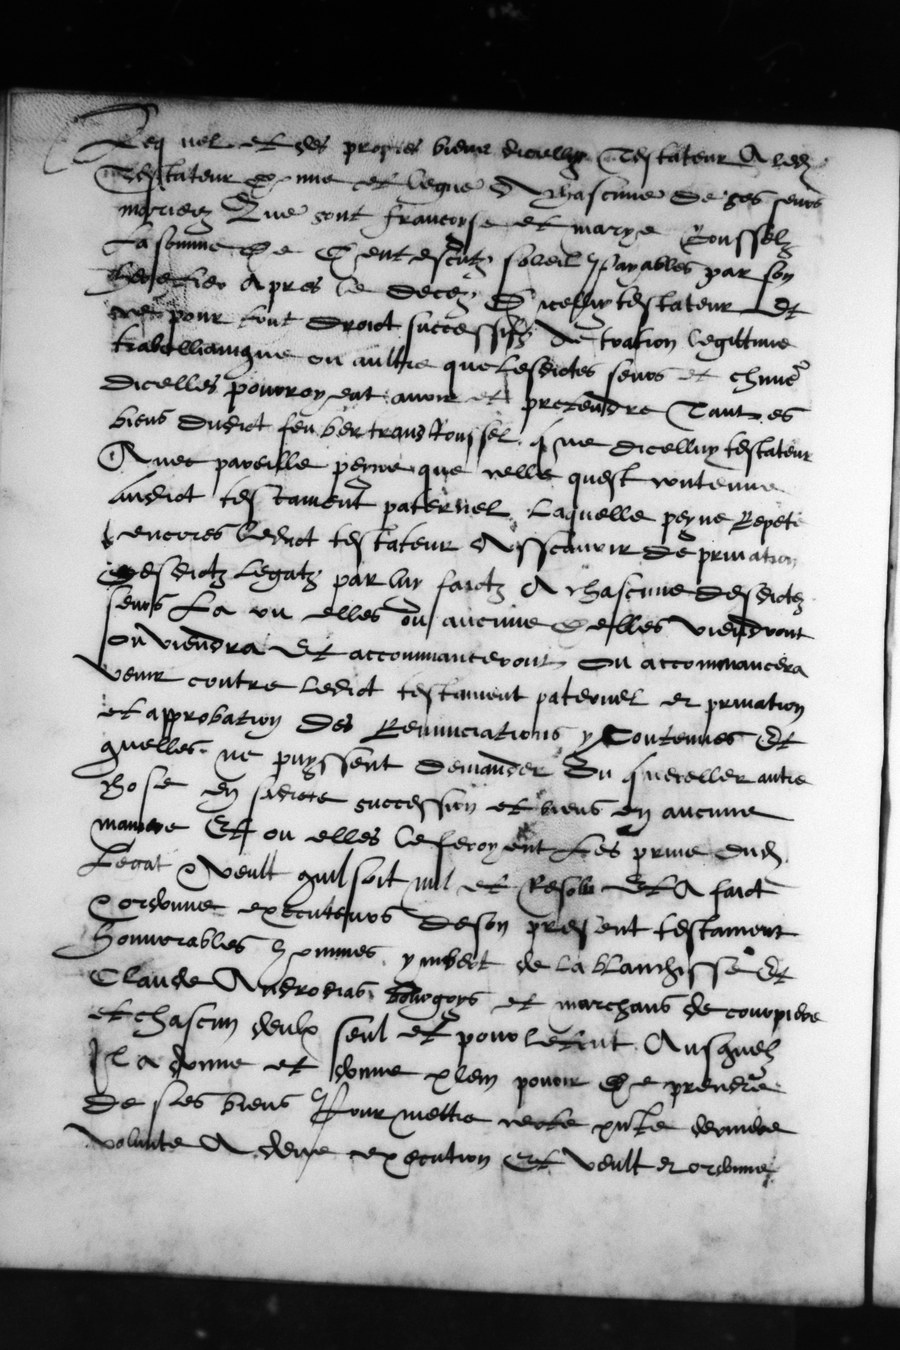 Requel et des propres biens dicelluy Testateur A led
Testateur donne et legue A chascune de ses seurs
mariees Que sont francoyse et marye Rousselz
La somme de Cent escutz soleil payables par son
heretier Apres le decez Dicelluy testateur Et
ce pour tout droict successifz de toation legittime
trabellianique ou aultre que lesdictes seurs et chune
dicelles pourroyent avoir et pretendre Tant es
biens dudict feu bertrand Roussel que dicelluy testateur
Avec pareille peyne que celle quest contenue
Audict testament paternel Laquelle peyne Repete
encores ledict testateur Asscavoir de privation
desdictz legatz par luy faictz A chascune desdictes
seurs La ou elles ou aucune delles viendront
ou viendra Et accommanceront Ou accommancera
venir contre ledict testament paternel et privation
et approbation des Renunciations y Contenues Et
quelles ne puyssent demander Ou quereller autre
chose en sadicte succession et biens en aucune
maniere Et ou elles le feroyent Les prive dud
Legat Veult quil soit nul et Resolu Et A faict
ordonne executeurs de son present testament
honnorables hommes ymbert de la blanchisse Et
Claude Androdias bourgoys et marchans de courpiere
et chascun deulx seul et pour le tout Ausquelz
Il a donne et donne plein povoir De prendre
De ses biens Pour mettre ceste presente derniere
volunte A deue execution Et veult et ordonne